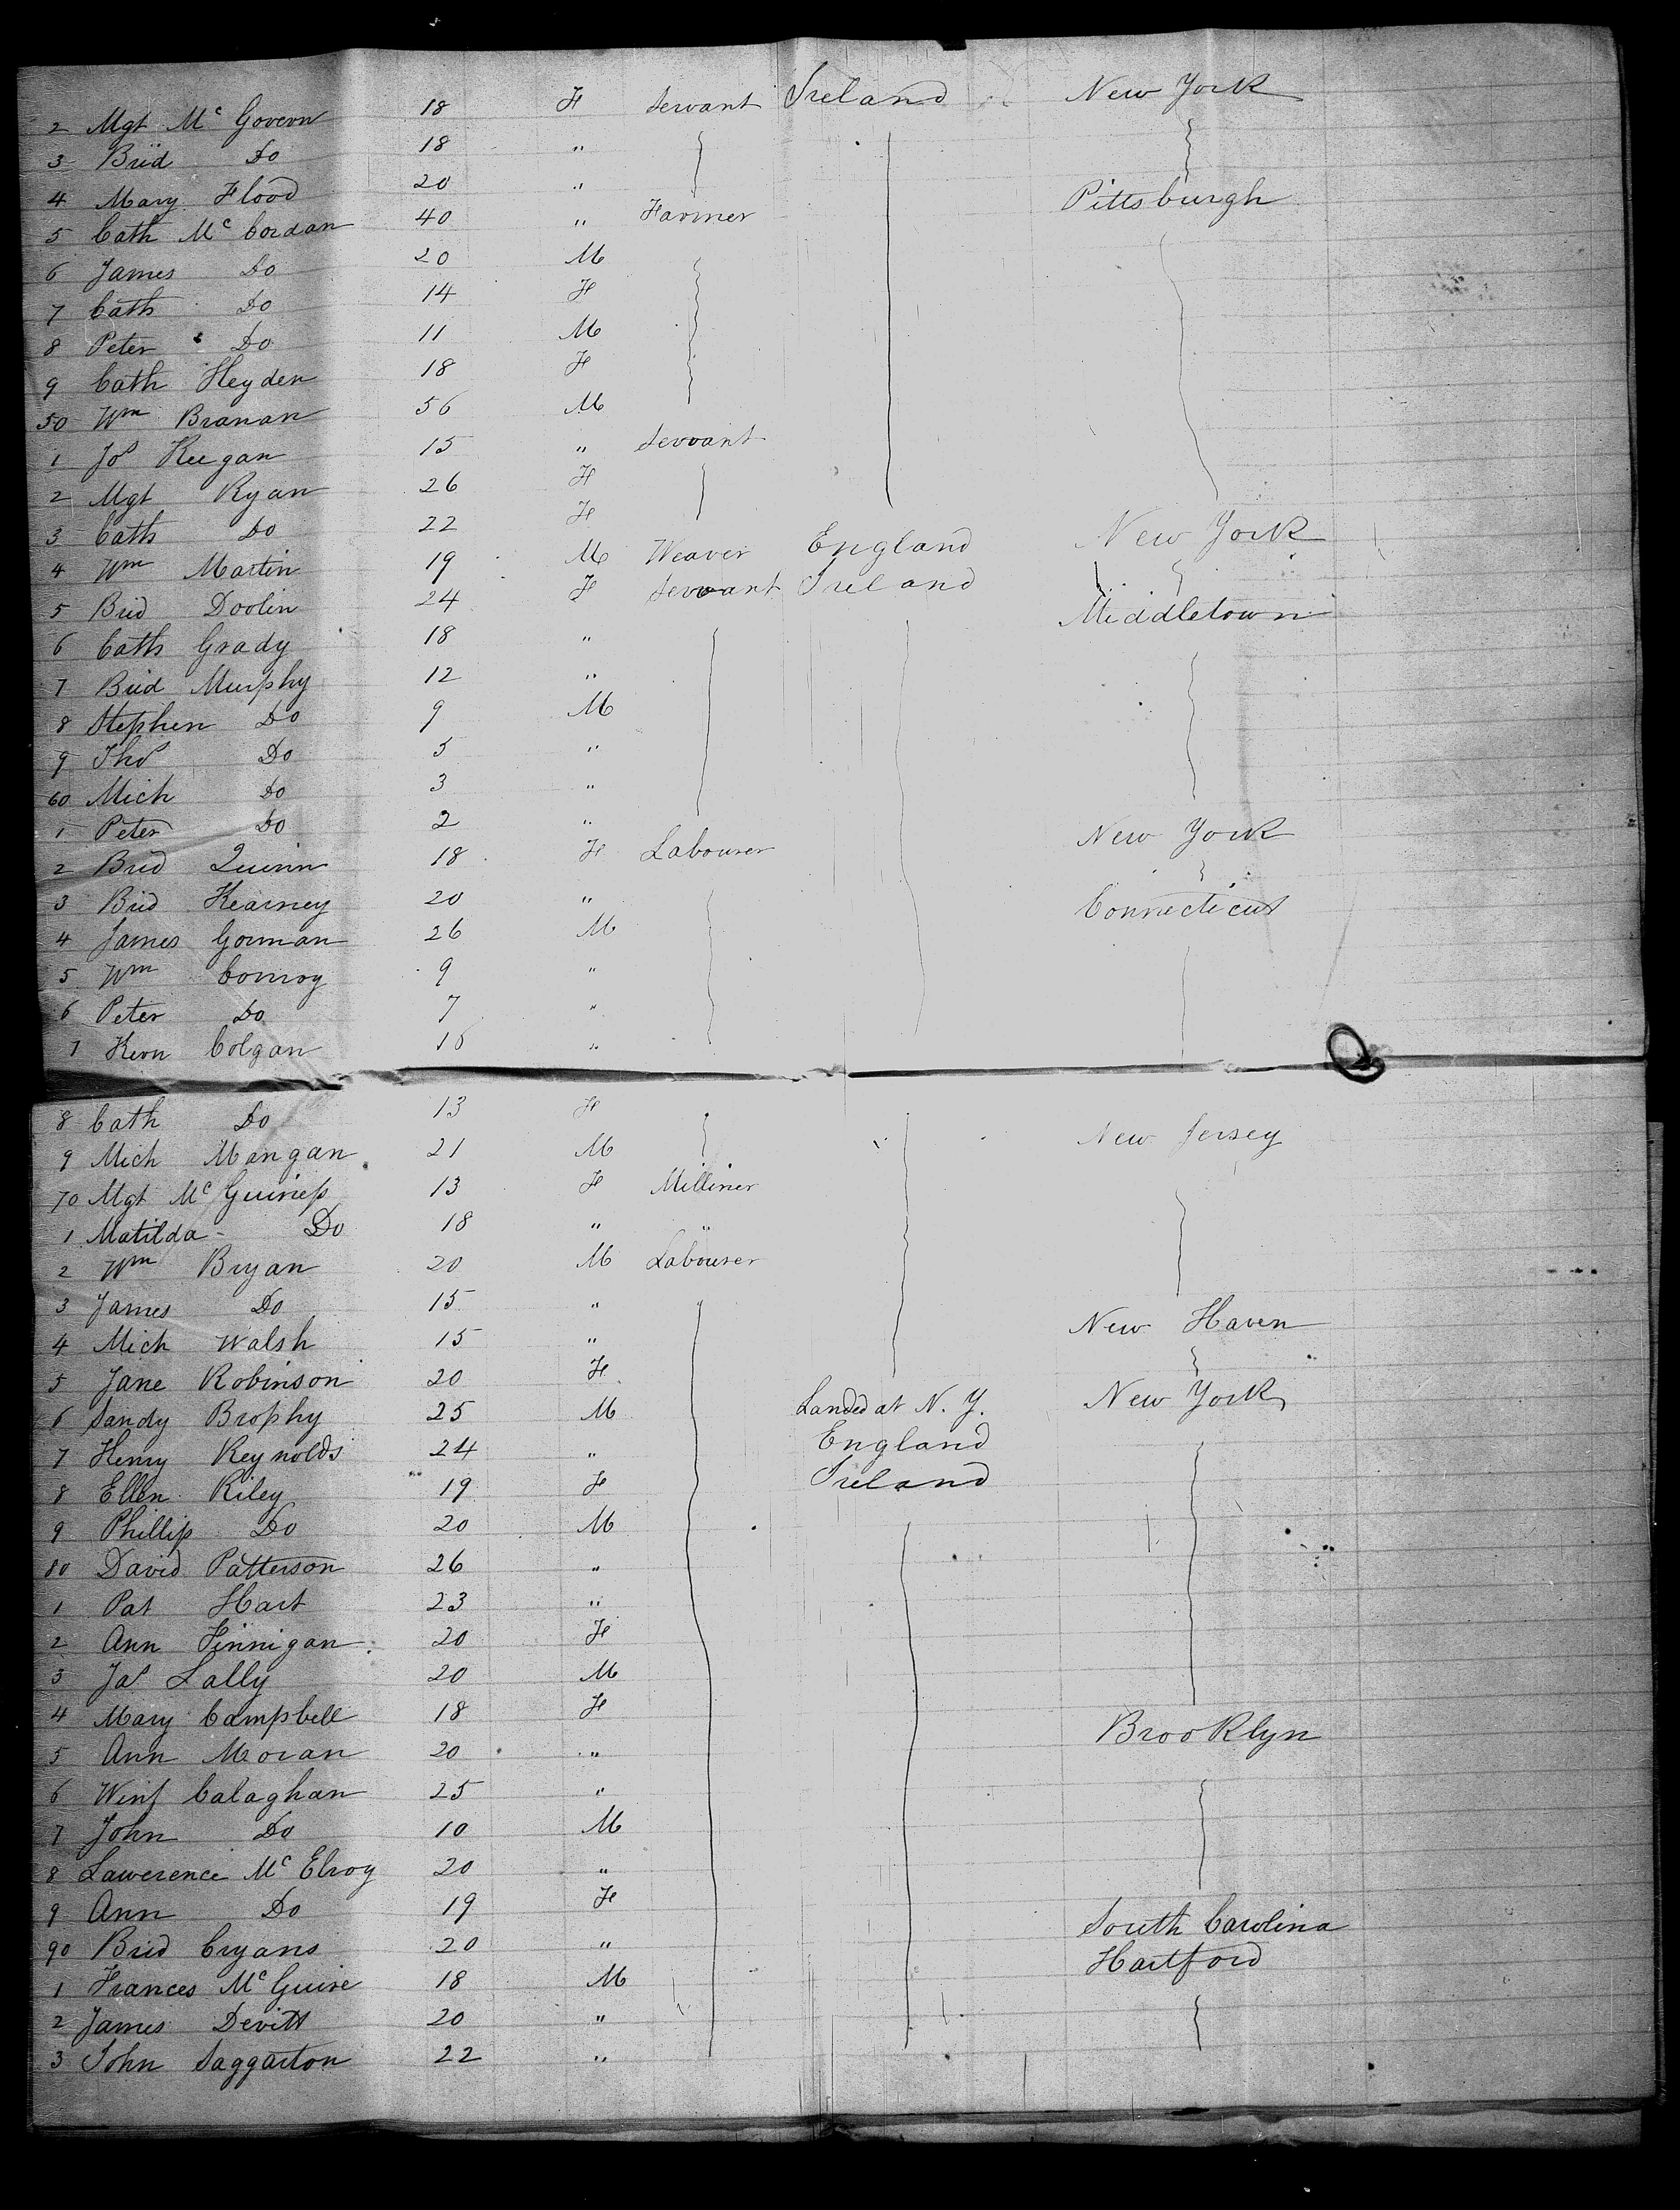 2 Mgt Mc Govern 18 F Servant Ireland New York
3 Brid Do 18 "
4 Mary Flood 20 " Pittsburgh
5 Cath Mc Cordan 40 " Farmer
6 James Do 20 M
7 Cath Do 14 F
8 Peter Do 11 M
9 Cath Heyden 18 F
50 Wm Branan 56 M
1 Jos Keegan 15 " Servant
2 Mgt Ryan 26 F
3 Cath Do 22 F New York
4 Wm Martin 19 M Weaver England
5 Brid Doolin 24 F Servant Ireland Middletown
6 Cath Grady 18 "
7 Brid Murphy 12 "
8 Stephen Do 9 M
9 Thos Do 5 "
60 Mich Do 3 "
1 Peter Do 2 " New York
2 Brid Quinn 18 F Labourer
3 Brid Kearney 20 " Connecticut
4 James Gorman 26 M
5 Wm Conroy 9 "
6 Peter Do 7 "
7 Kern Colgan 16 "
8 Cath Do 13 F New Jersey
9 Mich Mangan 21 M
70 Mgt Mc Guiness 13 F Milliner
1 Matilda Do 18 " "
2 Wm Bryan 20 M Labourer
3 James Do 15 " New Haven
4 Mich Walsh 15 "
5 Jane Robinson 20 F New York
6 Sandy Brophy 25 M Landed at N. Y.
7 Henry Reynolds 24 " England
8 Ellen Riley 19 F Ireland
9 Phillip Do 20 M
80 David Patterson 26 "
1 Pat Hart 23 "
2 Ann Finnigan 20 F
3 Jas Lally 20 M
4 Mary Campbell 18 F Brooklyn
5 Ann Moran 20 "
6 Winf Calaghan 25 "
7 John Do 10 M
8 Lawerence Mc Elroy 20 "
9 Ann Do 19 F South Carolina
90 Brid Cryans 20 " Hartford
1 Frances Mc Guire 18 M
2 James Devitt 20 "
3 John Saggarton 22 "